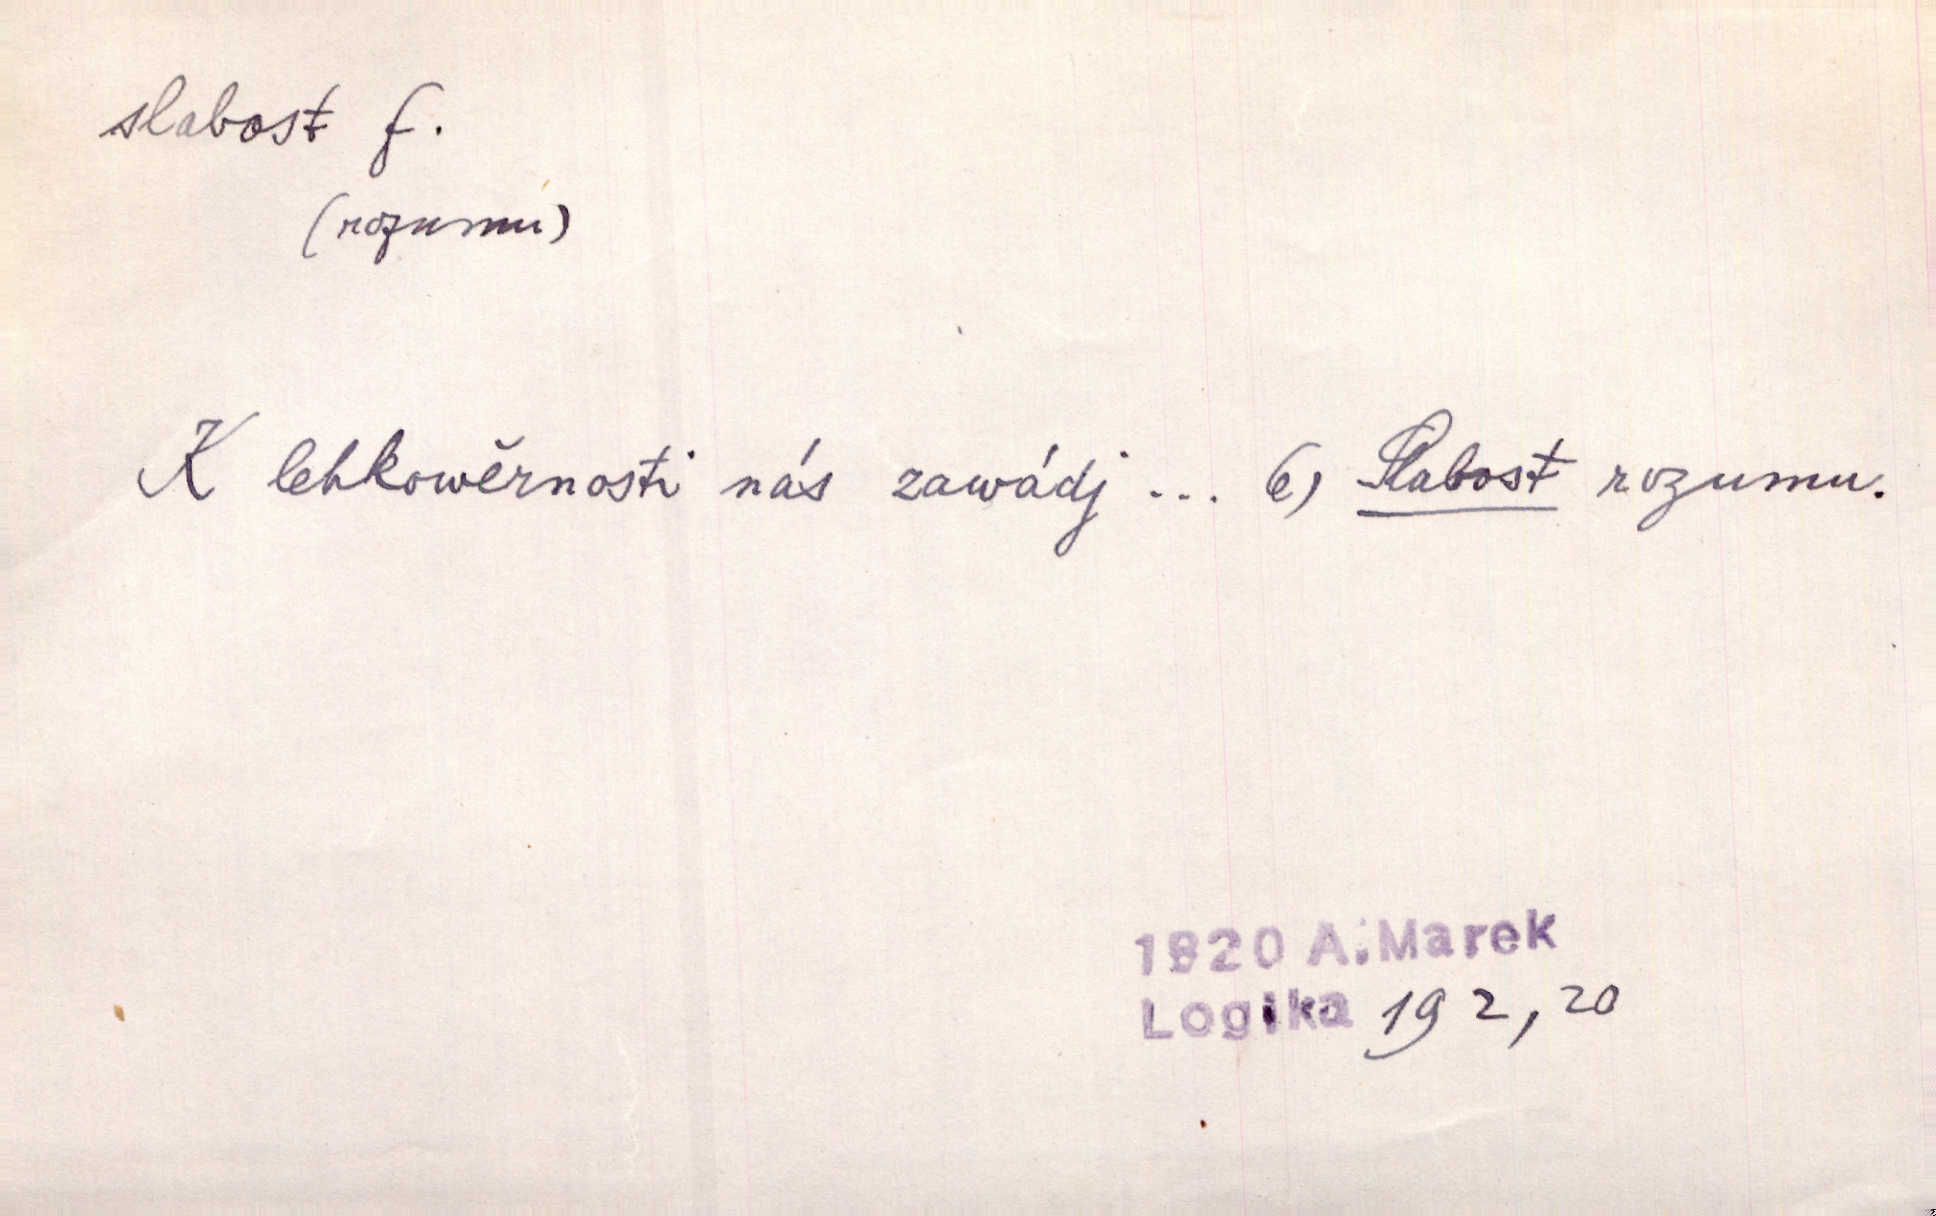 slabost f.
(rozumu)
K lehkowěrnosti nás zawádj ... 6) Slabost rozumu.
1820 A. Marek
Logika 192, 20